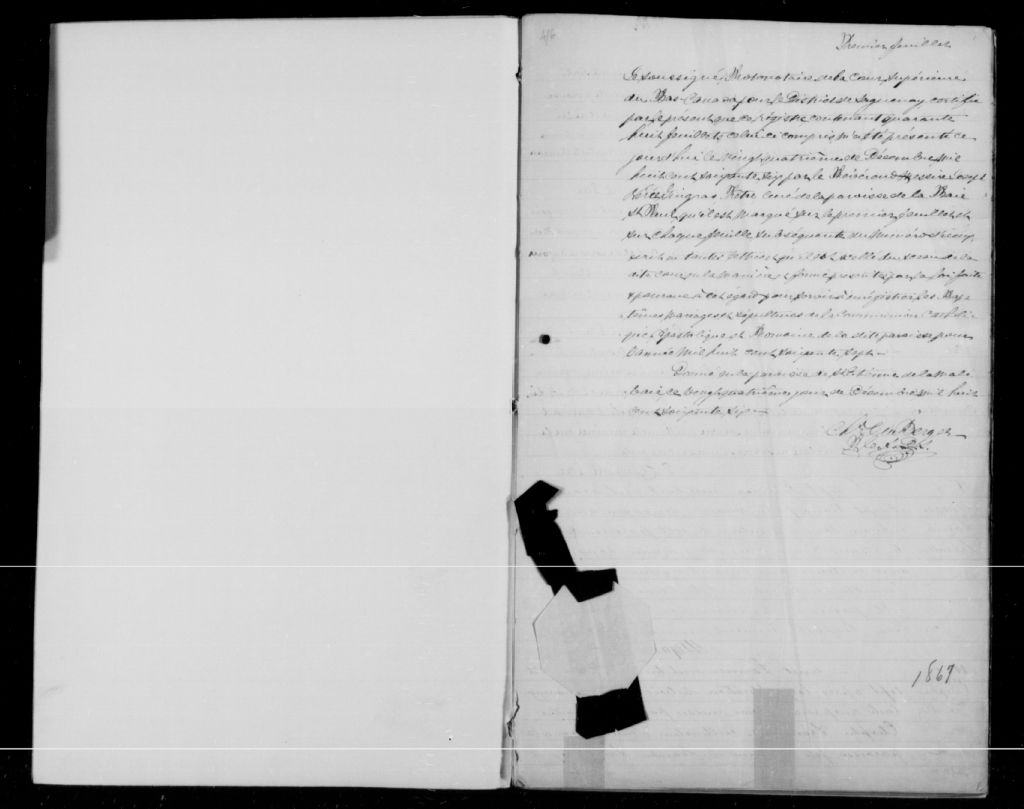 Premier feuillet
Je soussigné, Protonotaire de la Cour Supérieure
du Bas-Canada pour le District de Saguenay certifie
par le présent que ce régistre contenant quarante
huit feuillets celui ci compris m'a été présenté ce
jourd'hui le vingt quatrième de Décembre mil
huit cent soixante six par le Révérend Messire Joseph
Gingras Prêtre Curé de la paroisse de la Baie
St Paul, qu'il est marqué sur le premier feuillet et
sur chaque feuille subséquente du numéro
écrit en toutes lettres et qu'il est scellé du sceau de la
dite Cour en la manière et forme prescrite par la loi faite
& pourvue à cet égard pour servir à enrégistrer les Bap-
têmes mariages et sépultures de la Communion Catholi-
que Apostolique et Romaine de la dite paroisse pour
l'année mil huit cent soixante sept.—
Donné en la paroisse de St Etienne de la Mal-
baie ce vingt quatrième jour de Décembre mil huit
cent soixante six—
Chs Du Berger
1867